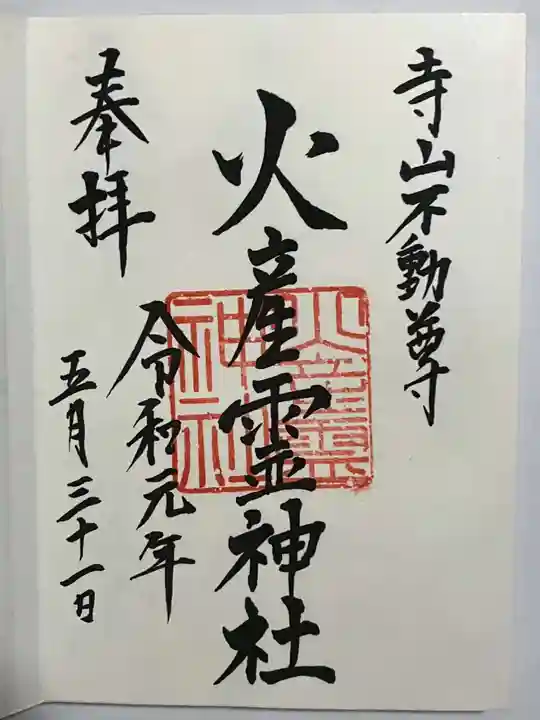 寺山不動尊
火産霊神社
奉拝
令和元年
五月三十一日
火産霊
神社